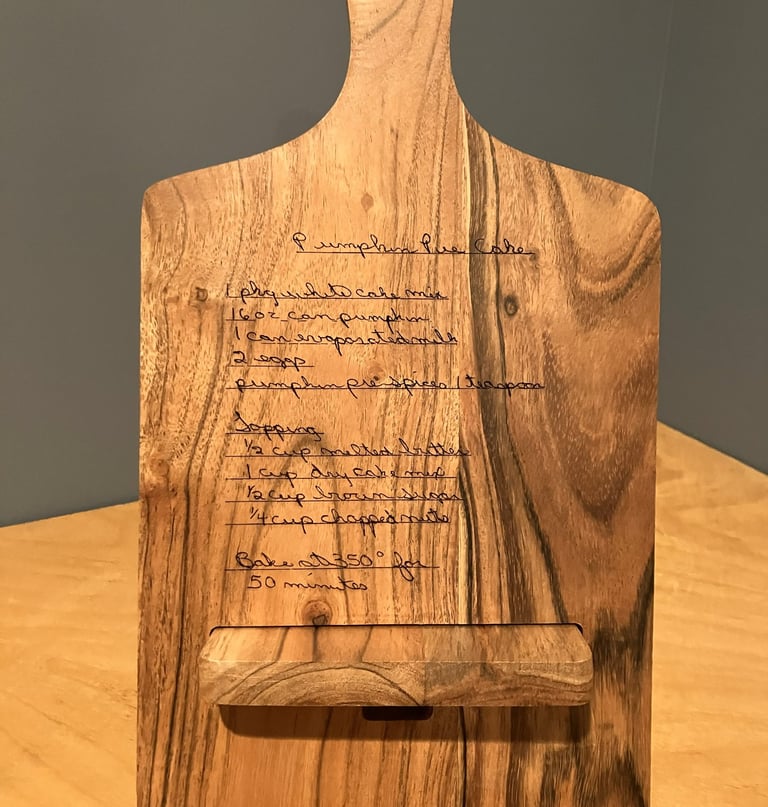 Pumpkin Pie Cake
1 pkg white cake mix
16 oz can pumpkin
1 can evaporated milk
2 eggs
pumpkin pie spices 1 teaspoon
Topping
1/2 cup melted butter
1 cup dry cake mix
1/2 cup brown sugar
1/4 cup chopped nuts
Bake at 350° for
50 minutes